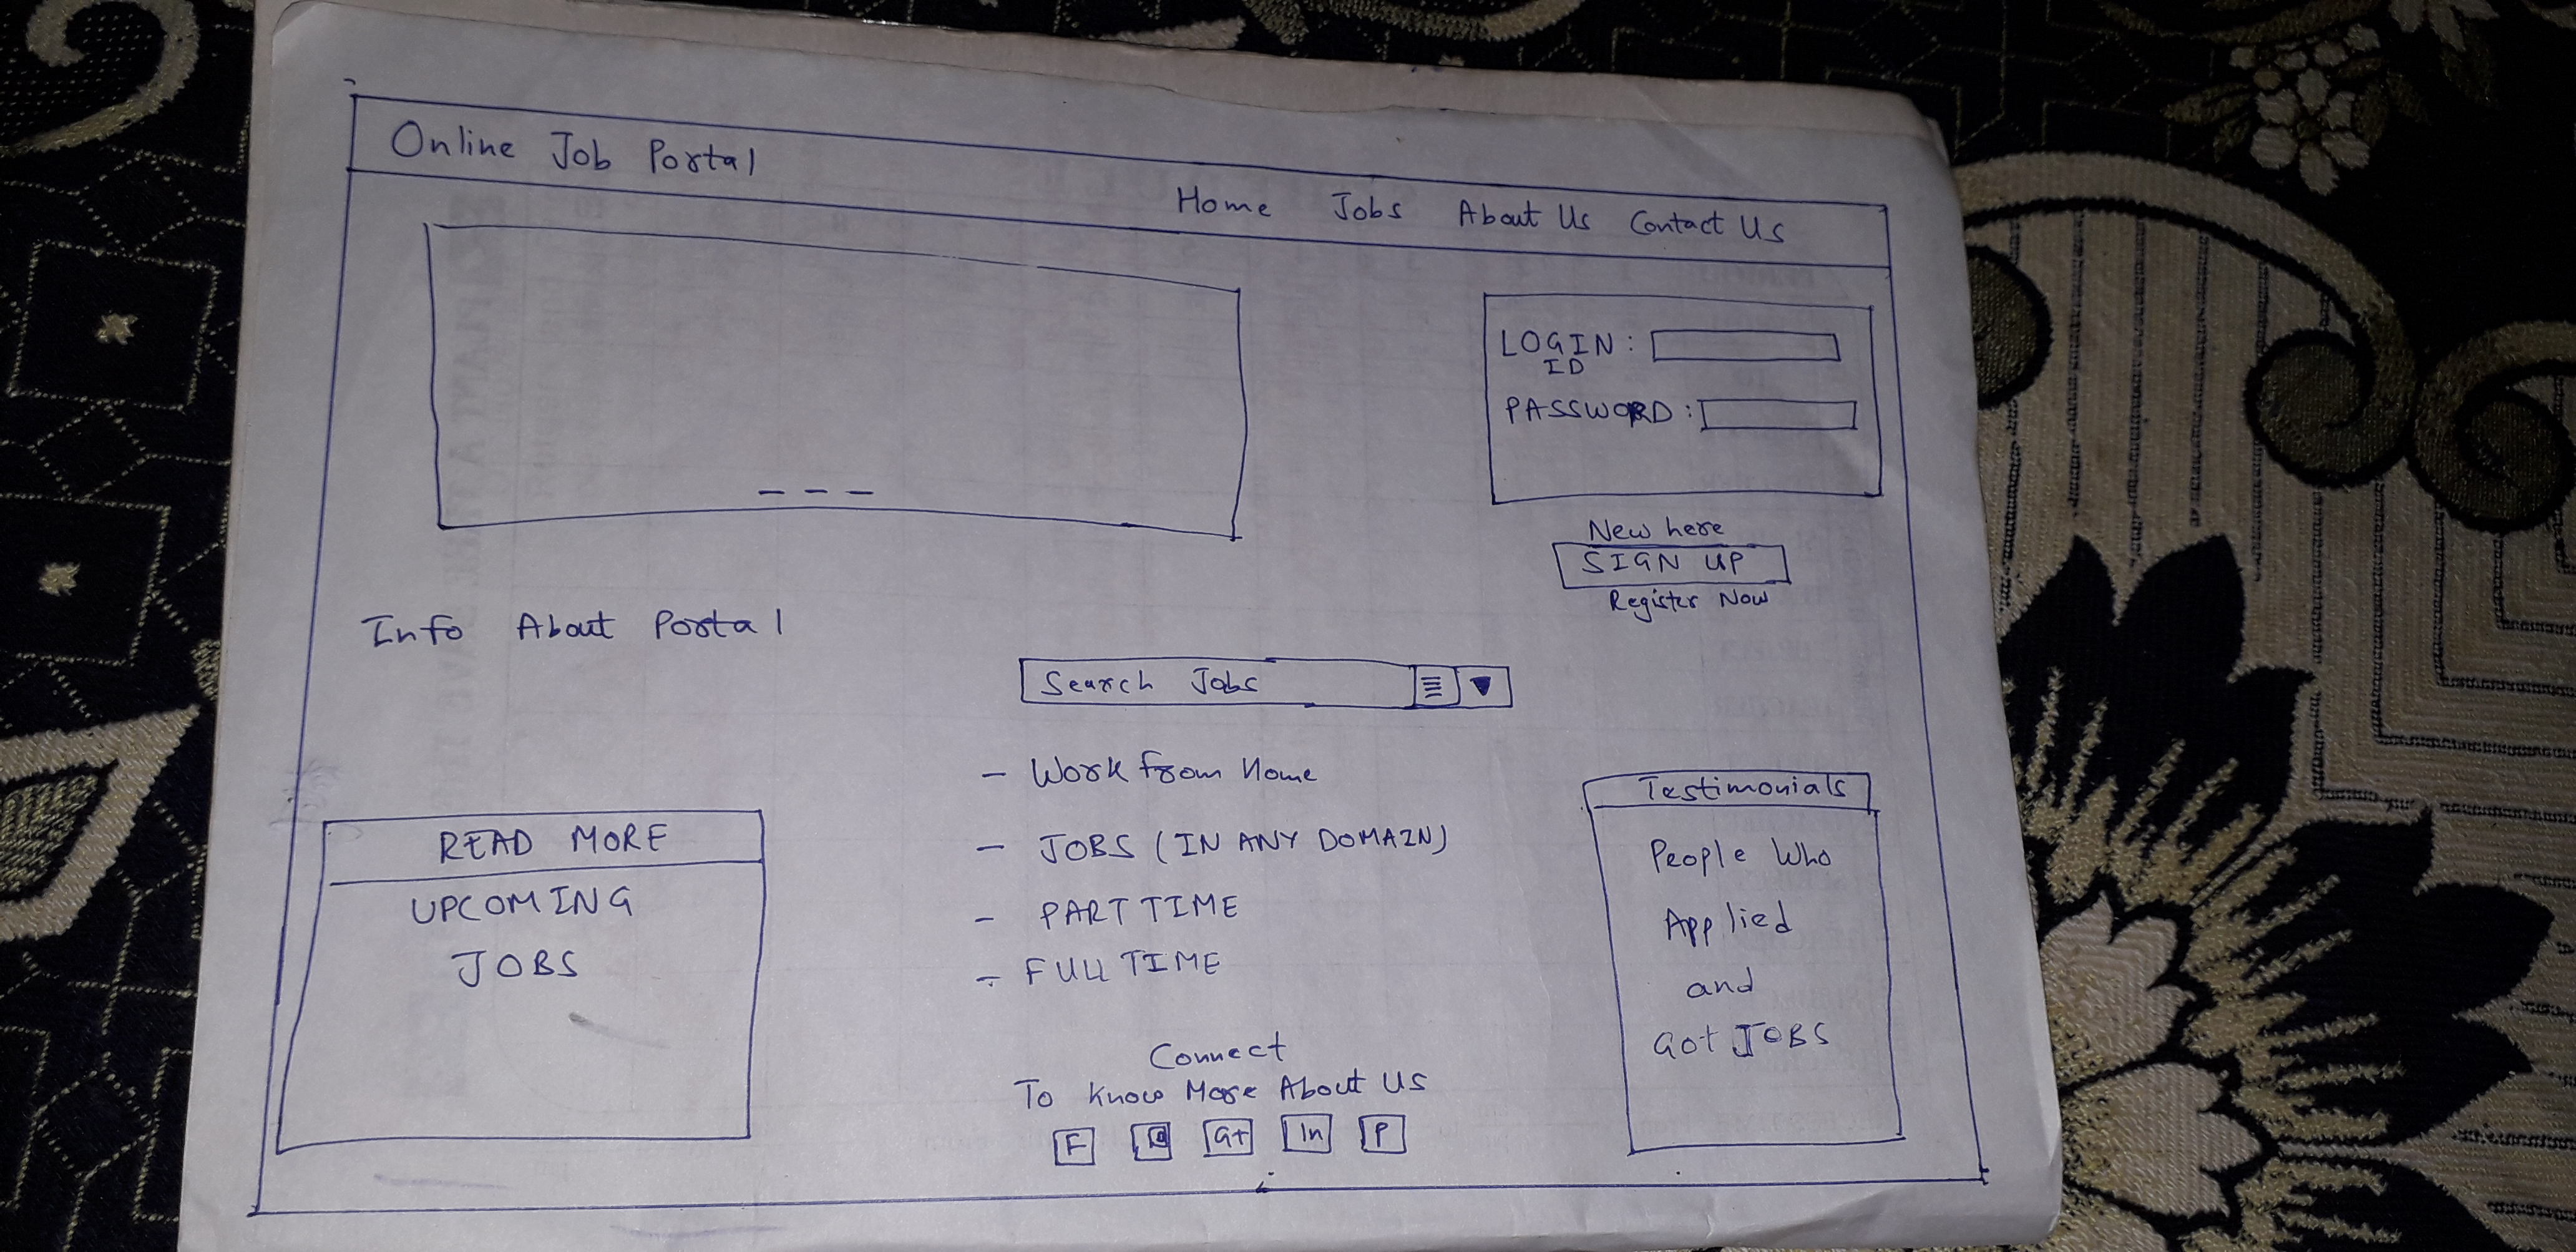 Online Job Portal
Home Jobs About Us Contact Us
LOGIN :
ID
PASSWORD :
New here
SIGN UP
Register Now
Info About Portal
Search Jobs
- Work from Home
- JOBS (IN ANY DOMAIN)
- PART TIME
- FULL TIME
READ MORE
UPCOMING
JOBS
Testimonials
People Who
Applied
and
Got JOBS
Connect
To Know More About Us
F
G+ In P